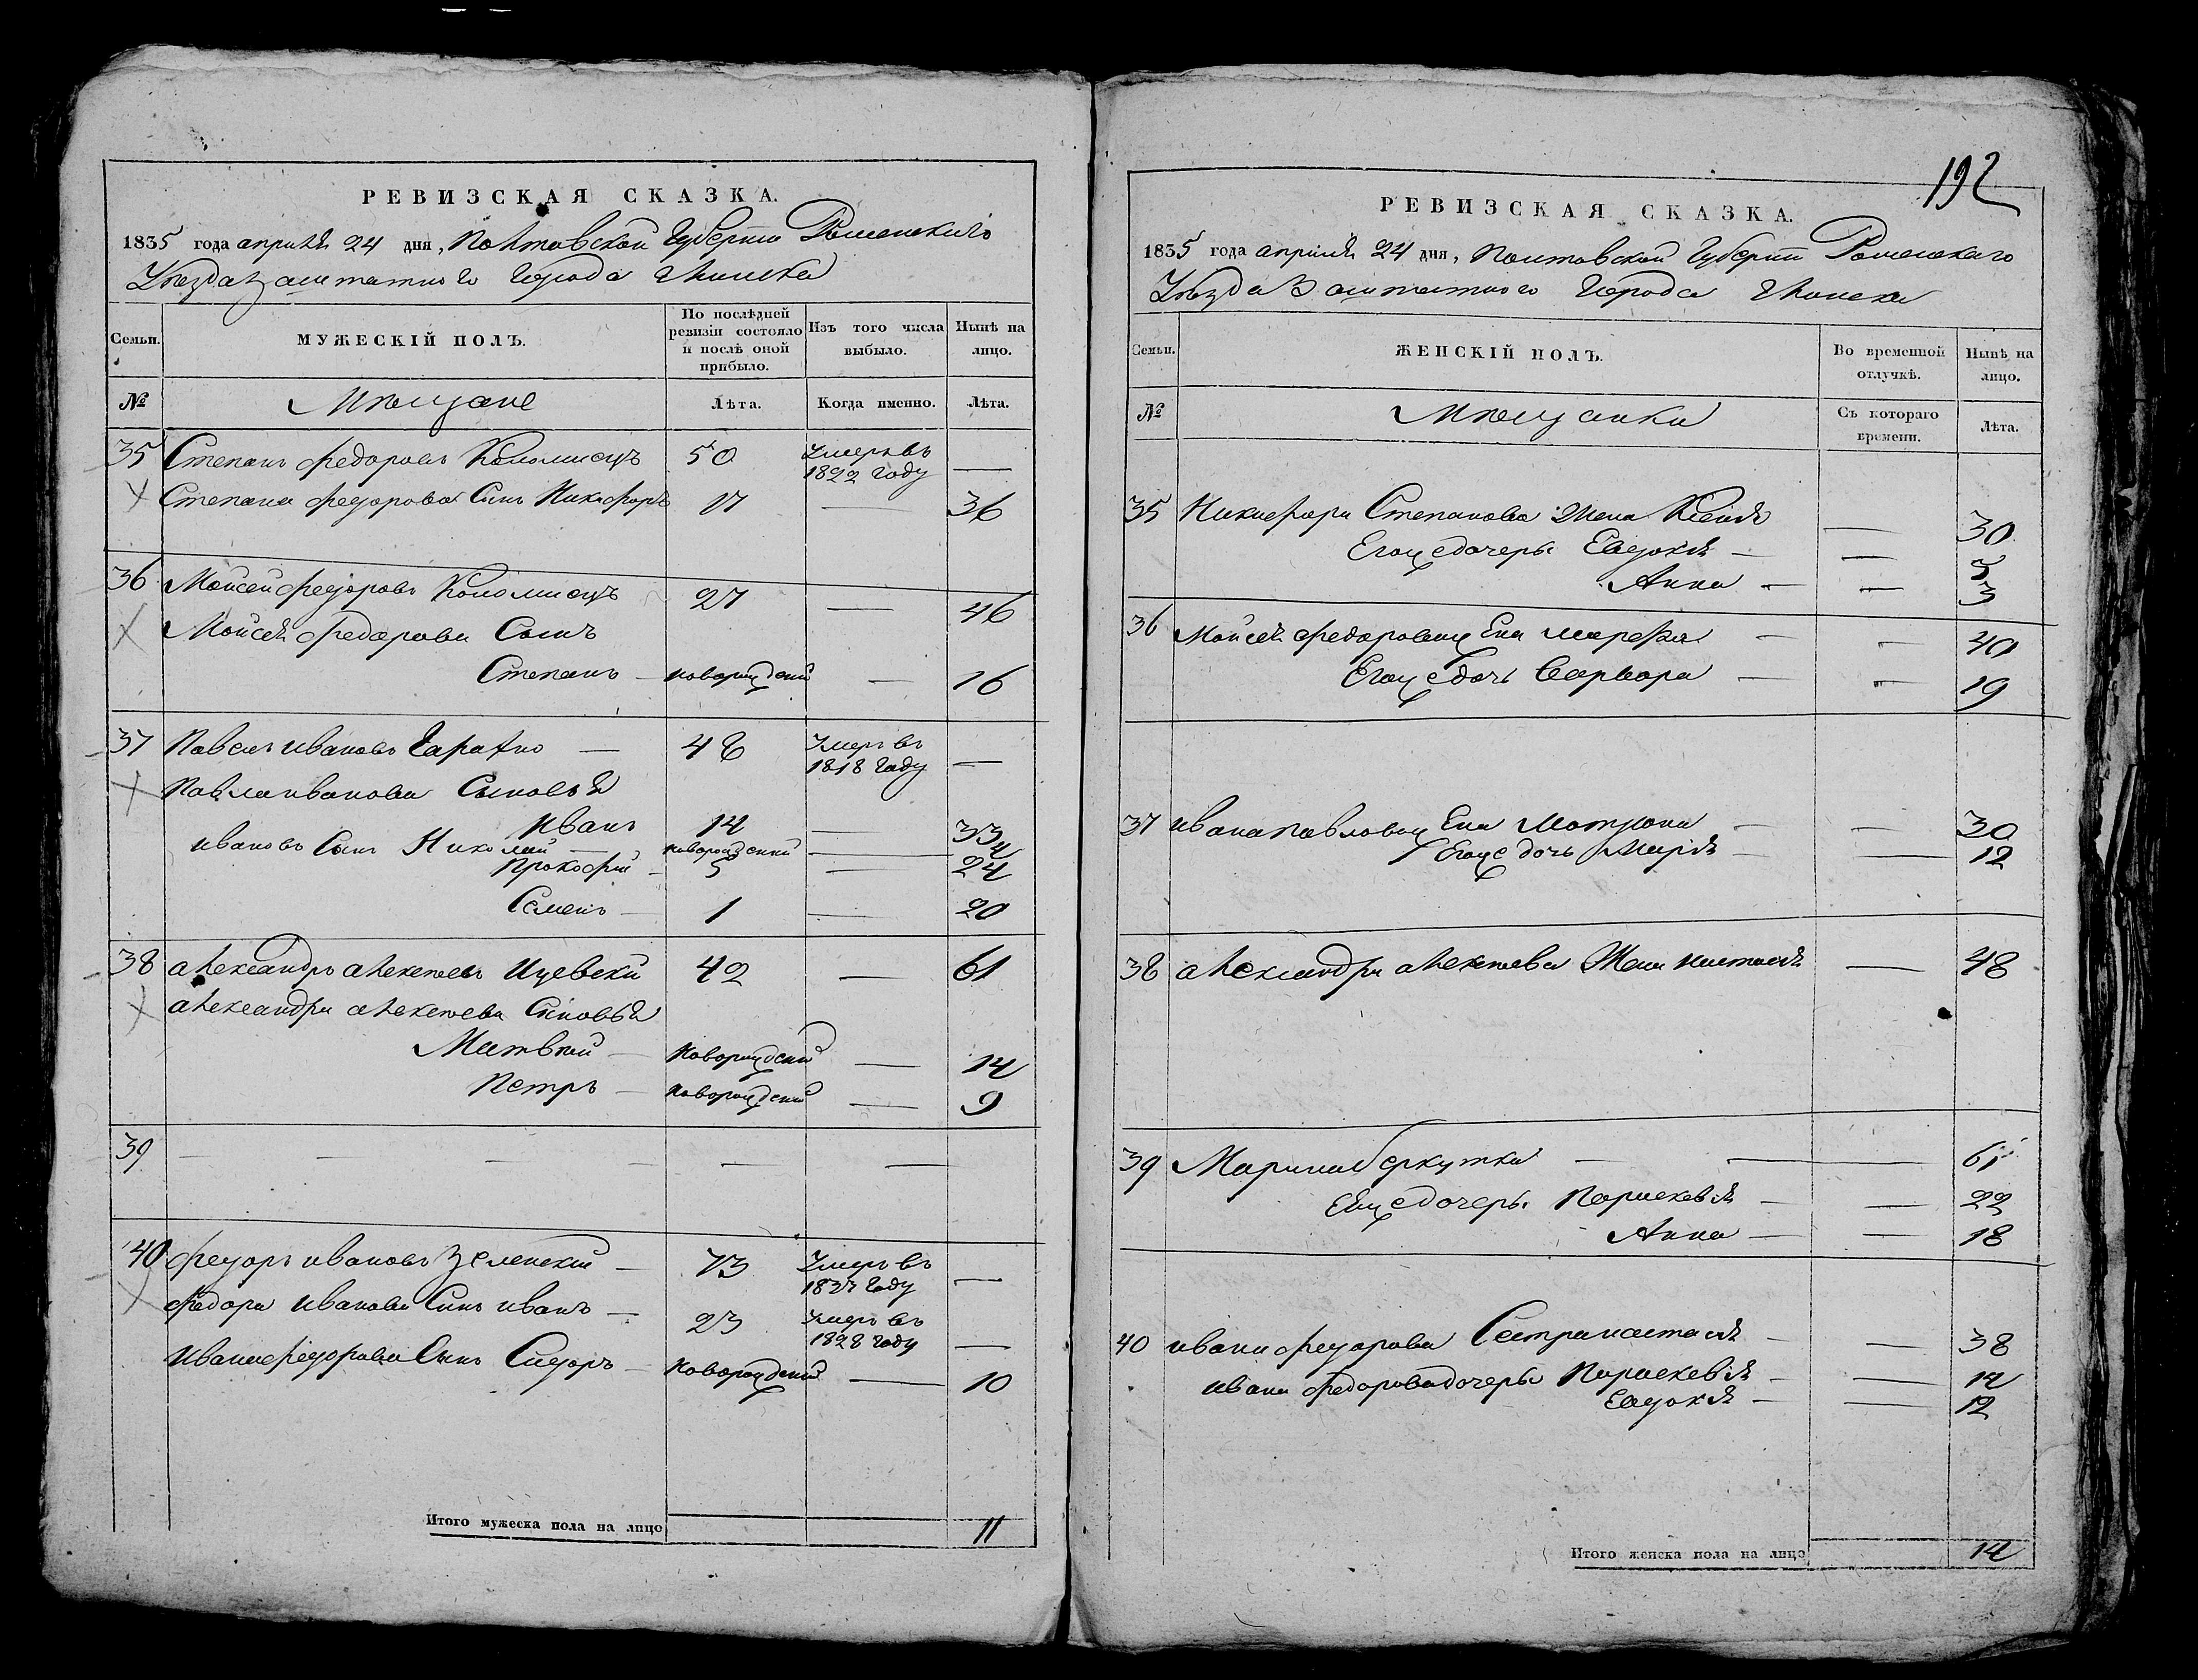 РЕВИЗСКАЯ СКАЗКА.
1835 года априля 24 дня, Полтавской Губернии Роменского
Уезда Заштатного Города Глинска
Семьи.
МУЖЕСКІЙ ПОЛЪ.
По послѣдней ревизіи состояло и послѣ оной прибыло.
Изъ того числа выбыло.
Нынѣ на лицо.
№
Мещане
Лѣта.
Когда именно.
Лѣта.
35 Степанъ Федоровъ Коломиецъ 50 Умеръ въ 1822 году —
Степана Федорова Сынъ Никифоръ 17 — 36
36 Мойсей Федоровъ Коломиецъ 27 — 46
Мойсея Федорова Сынъ
Степанъ — новорожденій — 16
37 Павелъ Ивановъ — 48 Умеръ въ 1818 году —
Павла Иванова Сыновья
Иванъ 14 — 33
Ивановъ Сынъ Николай — новорожденій —
Прокофий — 5 — 24
Семенъ — 1 — 20
38 Александръ Алексеевъ 42 — 61
Александра Алексеева Сыновья
Матвей — новорожденій — 14
Петръ — новорожденій — 9
39 — — — — — —
40 Федоръ Ивановъ Зеленский — 73 Умеръ въ году —
Федора Иванова Сынъ Иванъ — 23 Умеръ въ 1828 году —
Ивана Федорова Сынъ Сидоръ — новорожденій — 10
Итого мужеска пола на лицо 11
192
РЕВИЗСКАЯ СКАЗКА.
1835 года априля 24 дня, Полтавской Губернии Роменского
Уезда Заштатного Города Глинска
Семьи.
ЖЕНСКІЙ ПОЛЪ.
Во временной отлучкѣ.
Нынѣ на лицо.
№
Мещанки
Съ котораго времени.
Лѣта.
35 Никифора Степанова Жена Ксения — 30
Егоже дочеры Евдокия — — 5
Анна — — 3
36 Мойсея Федорова жена Марфа — — 40
Егоже дочь Варвара — — 19
37 Ивана Павлова жена Матрона — — 30
Егоже дочь Мария — — 12
38 Александра Алексеева Жена Настасия — 48
39 Марина Беркутка — — 61
Еяже дочеры Параскевия — — 22
Анна — — 18
40 Ивана Федорова Сестра Настасия — — 38
Ивана Федорова дочеры Параскевия — — 14
Евдокия — — 12
Итого женска пола на лицо 14